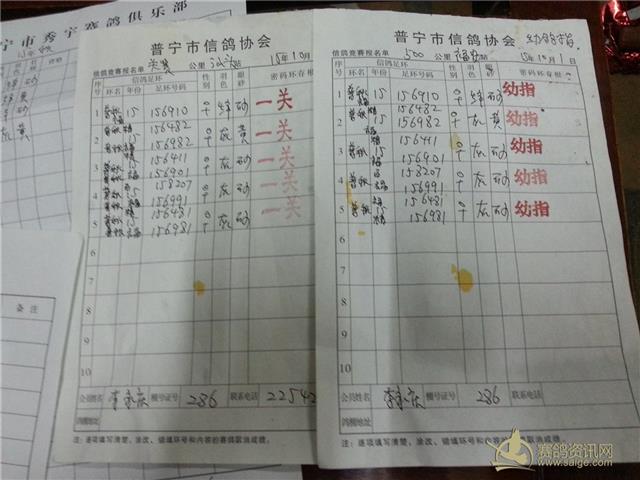 宁市秀宇赛鸽俱乐部
备注
普宁市信鸽协会
信鸽竞赛报名单 关赛 公里 站 15年10月
序号 信鸽足环 性别 羽色 眼砂 密码环存根
环名 年份 足环号码
1 普秋 15 156910 ♀ 绛 砂 一关
156482
2 15 156982 ♀ 灰 黄 一关
156411
3 15 156901 ♀ 灰 砂 一关
158207
4 15 156991 ♀ 灰 砂 一关
156481
5 15 156981 ♀ 灰 砂 一关
6
7
8
9
10
会员姓名 棚号证号 286 联系电话 22542
鸽棚地址
注：逐项填写清楚，涂改、错填环号和内容的赛鸽取消成绩。
普宁市信鸽协会 幼鸽指
信鸽竞赛报名单 500 公里 站 15年10月1日
序号 信鸽足环 性别 羽色 眼砂 密码环存根
环名 年份 足环号码
1 普秋 15 156910 ♀ 绛 砂 幼指
156482
2 15 156982 ♀ 灰 黄 幼指
156411
3 15 156901 ♀ 灰 砂 幼指
158207
4 15 156991 ♀ 灰 砂 幼指
156481
5 15 156981 ♀ 灰 砂 幼指
6
7
8
9
10
会员姓名 棚号证号 286 联系电话
鸽棚地址
注：逐项填写清楚，涂改、错填环号和内容的赛鸽取消成绩。
赛鸽资讯网
www.saige.com